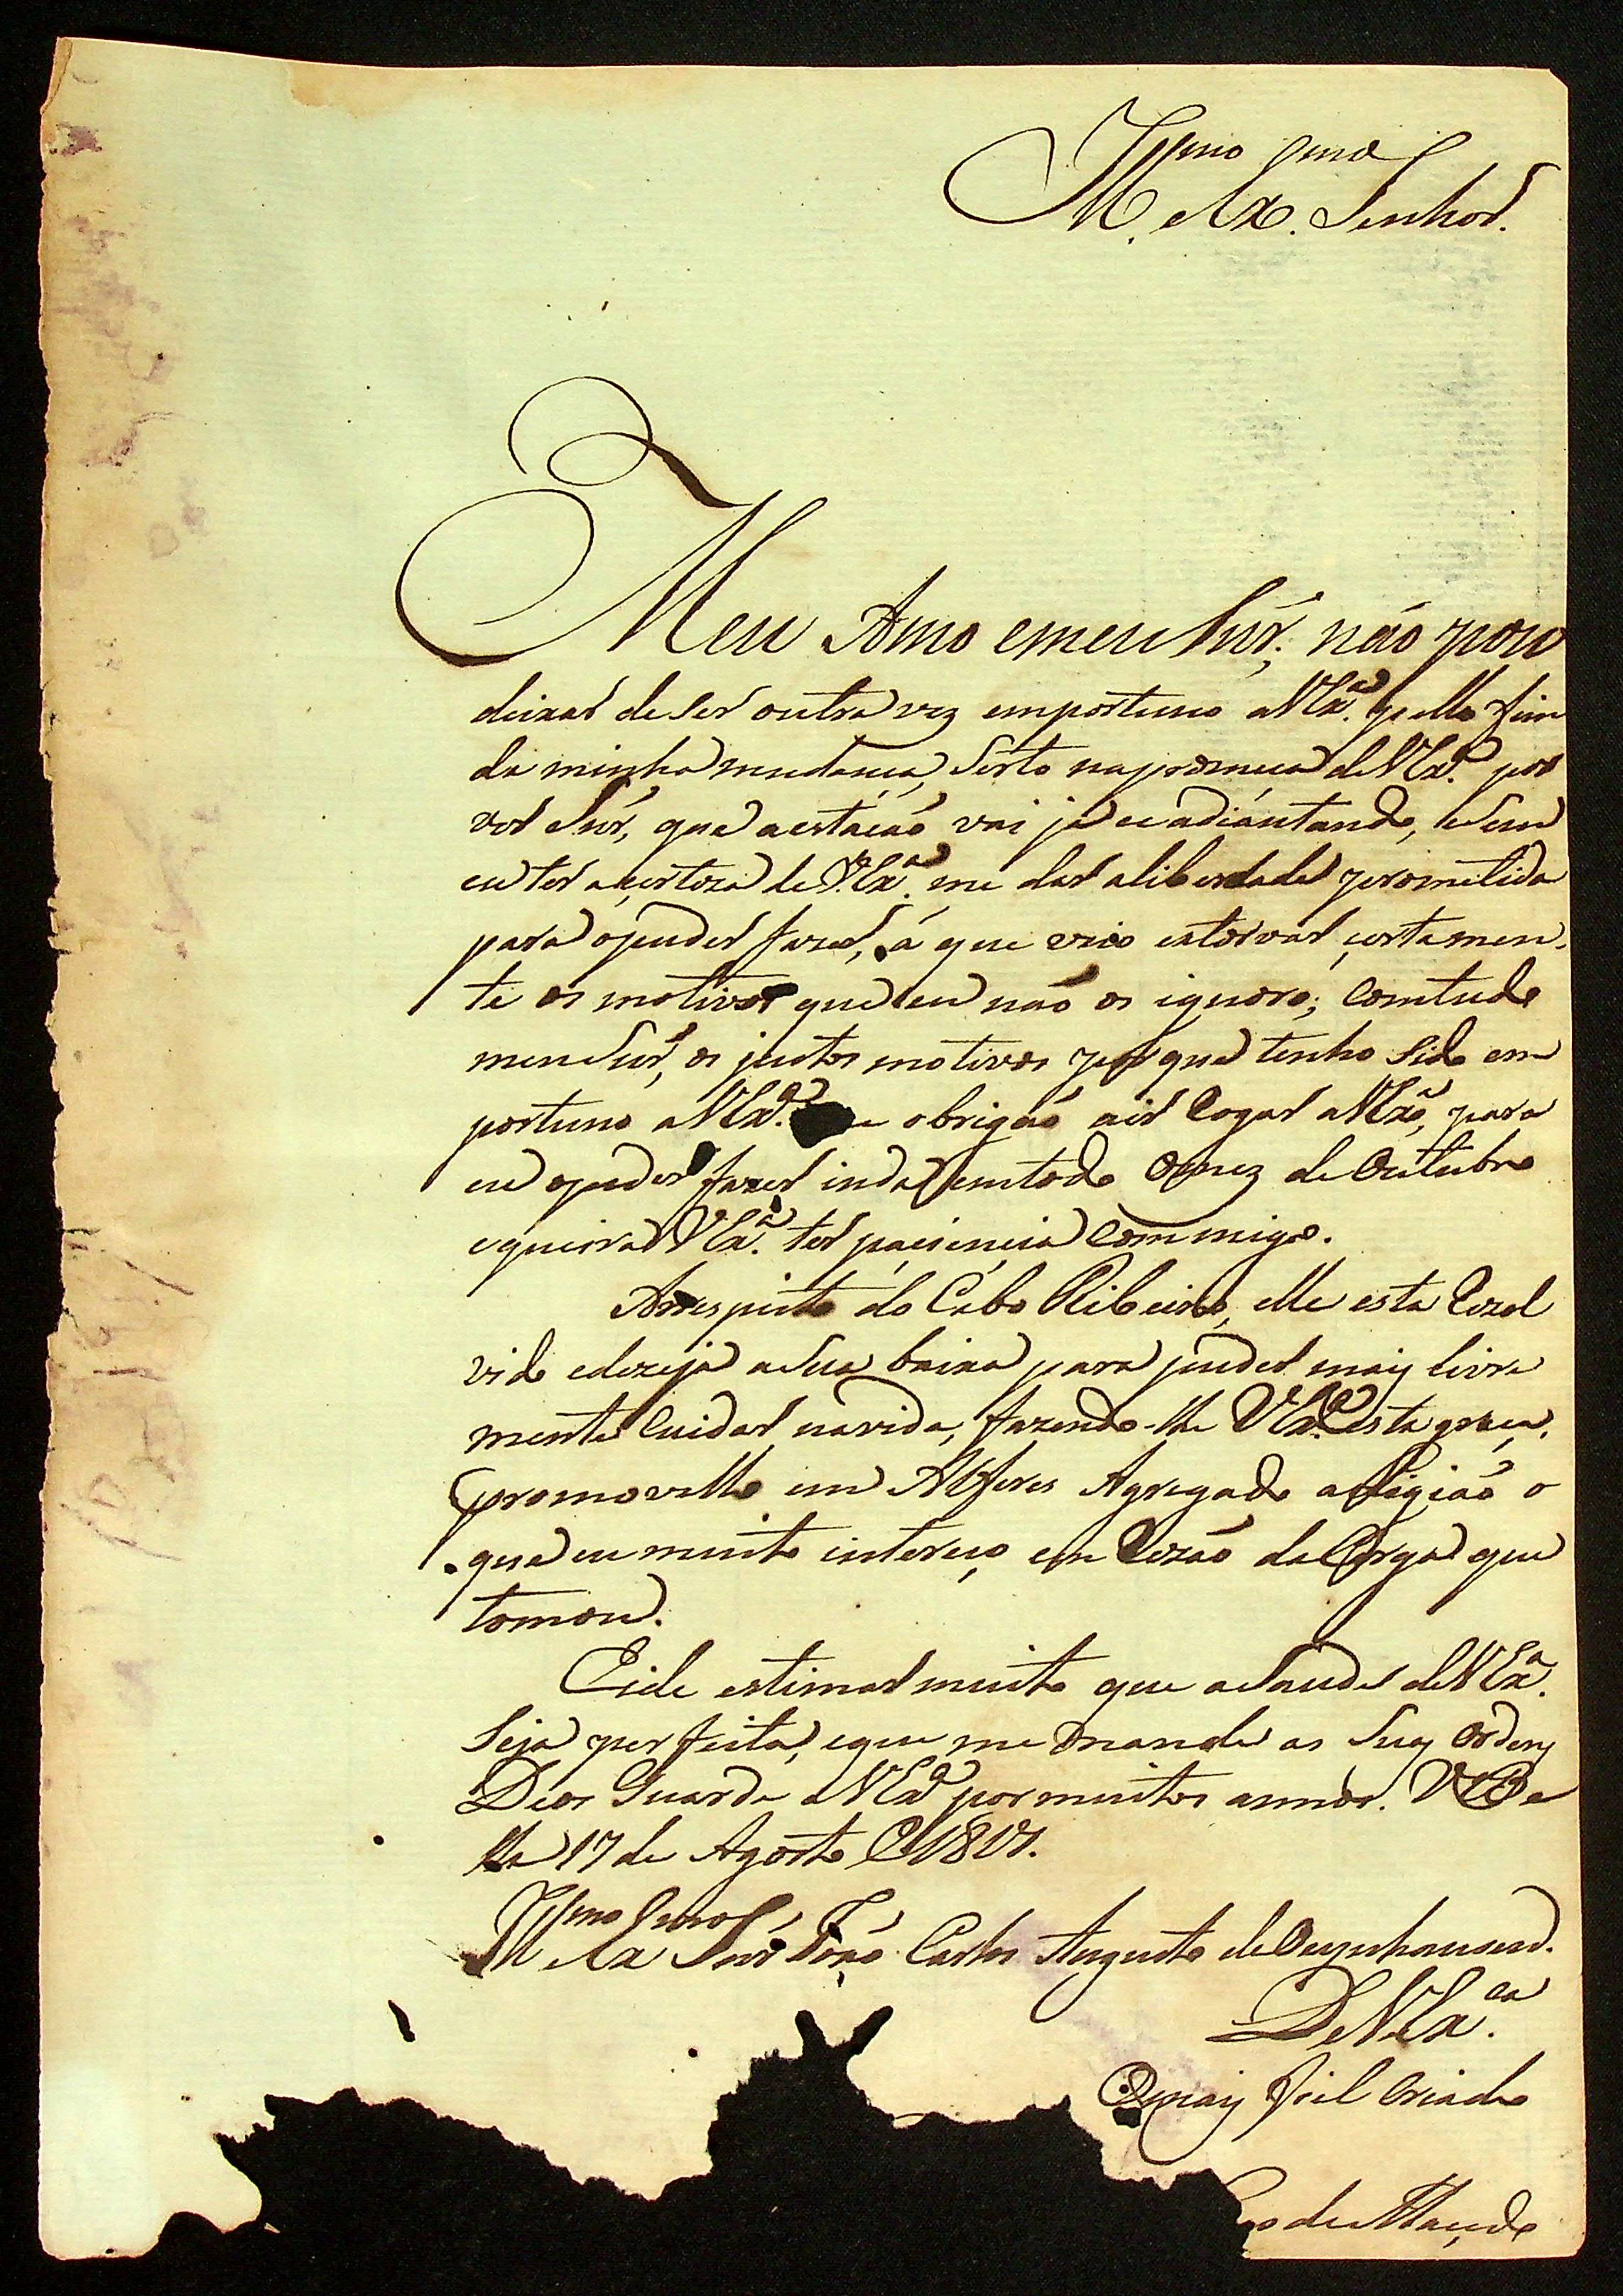 Illmo Exmo
M. e Ex. Senhor.
Meu Amo e meu Snr.; não poço
deixar de ser outra vez emportuno a VExa. pello fim
da minha mudança, Serto na promeça de VExa. por
ver Snr, que a estação vai já se adiántando, e Sem
eu ter a certeza de VExa. me dar a liberdade prometida
para o puder fazer, á que vico estorvar, certamen-
te os motivos que eu naó os ignoro; Comtudo
meu Snr, os justos motivos por que tenho Sido em
portuno a VExa. obrigaó a ir Rogar a VExa, para
eu o puder fazer inda em todo o mez de Outubro
e queira VExa. ter paciencia Commigo.
Arrespeito do Cabo Ribeiro, elle esta Rezol
vido e dezeja a Sua baixa para puder mais livre
mente Cuidar na vida, fazendo-lhe VExa. esta graça,
promovello em Alferes Agregado a Legiaõ o
que eu muito intereço, em Rezaõ da Carga que
tomou.
Eide estimar muito que a Saude de VExa.
Seja perfeita, e que me mande as Suas Ordens
Deos Guarde a VExa por muitos annos. Va Be
lla 17 de Agosto de 1817.
Illmo Exmo
M e Ex Snr Joáo Carlos Augusto de Oeynhausen.
De VExa.
O mais fiel Criado
de Macedo